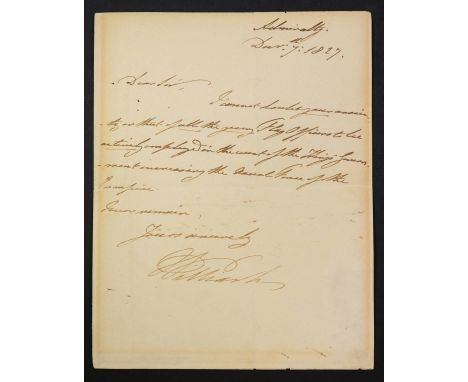 Admiralty
Decr. 7th: 1827.
Dear Sir,
I cannot doubt your anxie
ty or that of all the young Flag Officers to be
actively employed in the event of the King's Govern
ment increasing the Naval Force of the
Empire
I ever remain,
Yours sincerely
William